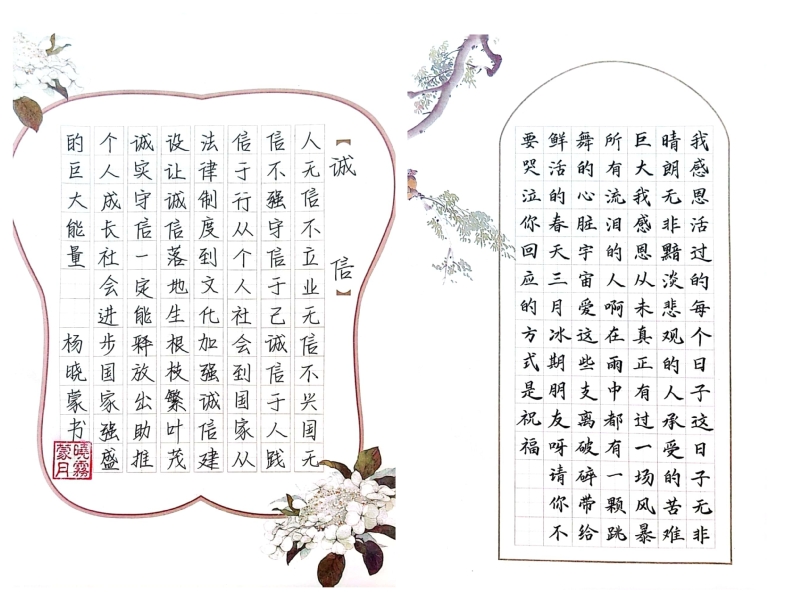 【诚信】
人无信不立业无信不兴国无
信不强守信于己诚信于人践
信于行从个人社会到国家从
法律制度到文化加强诚信建
设让诚信落地生根枝繁叶茂
诚实守信一定能释放出助推
个人成长社会进步国家强盛
的巨大能量 杨晓蒙书
曉霧
蒙月
我感恩活过的每个日子这日子无非
晴朗无非黯淡悲观的人承受的苦难
巨大我感恩从未真正有过一场风暴
所有流泪的人啊在雨中都有一颗跳
舞的心脏宇宙爱这些支离破碎带给
鲜活的春天三月冰期朋友呀请你不
要哭泣你回应的方式是祝福